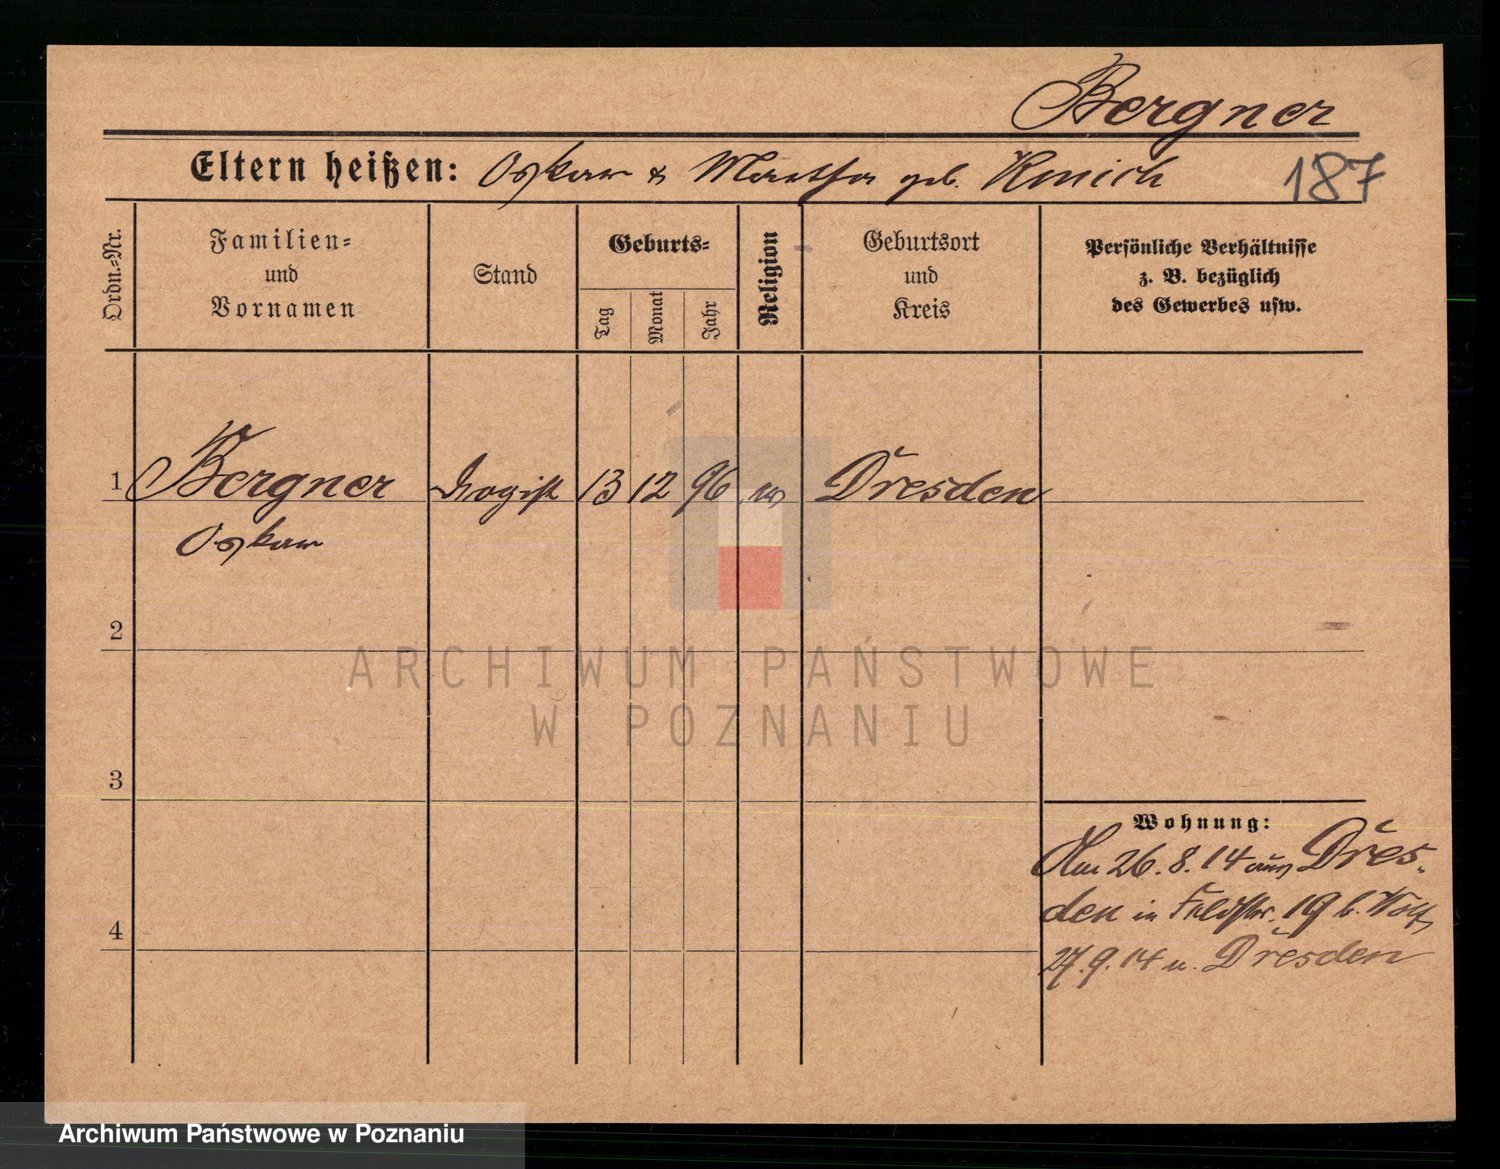 Bergner
Eltern heißen: Oskar & Martha geb.
187
Ordn.-Nr.
Familien- und Vornamen
Stand
Geburts-
Tag
Monat
Jahr
Religion
Geburtsort und Kreis
Persönliche Verhältnisse
z. B. bezüglich
des Gewerbes usw.
1 Bergner Drogist 13 12 96 Dresden
Oskar
2
3
4
Wohnung:
Am 26.8.14 aus Dres-
den in Feldstr. 19 b. Wolf
27.9.14 n. Dresden
ARCHIWUM PAŃSTWOWE
W POZNANIU
Archiwum Państwowe w Poznaniu